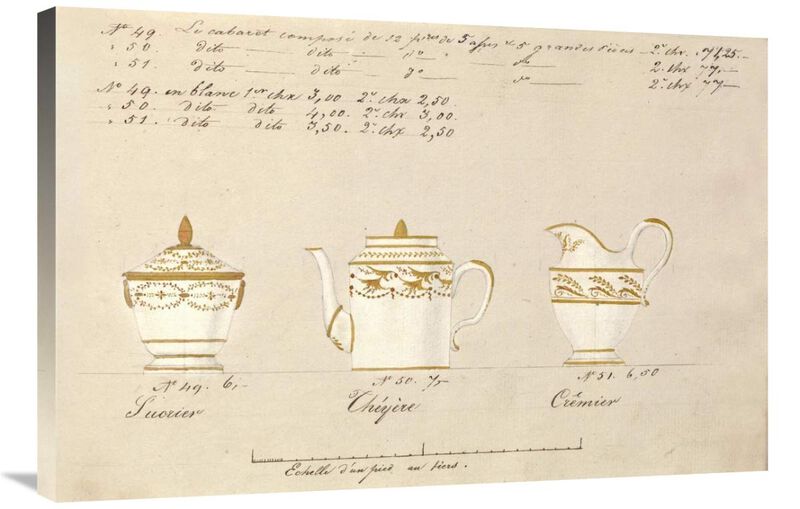 No 49. Le cabaret composé de 12 pièces de 5 à 5 grandes pièces - 2e chx. 71,25.-
" 50. dito dito do do 2. chx 77,-
" 51. dito dito do do 2e chx 77-
No 49. en blanc 1er chx 3,00 2e chx 2,50.
" 50. dito dito 4,00. 2e chx 3,00.
" 51. dito dito 3,50. 2e chx 2,50
No 49. 6,-
No 50. 7,-
No 51. 6,50
Sucrier
Théyère
Crêmier
Echelle d'un pied au tiers.